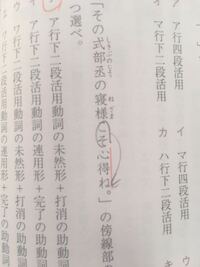 ア　ア行四段活用　イ　マ行四段活用　ウ
イ　マ行下二段活用　カ　ハ行下二段活用
「その式部丞の寝様こそ心得ね。」の傍線部
しきぶのじょう
ねざま
つ選べ。
ア行下二段活用動詞の未然形＋打消の助動詞
ア行下二段活用動詞の連用形＋完了の助動
ワ行下二段活用動詞の連用形＋完了の助動